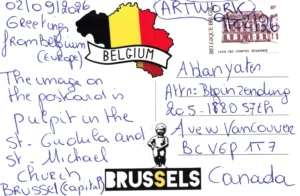 02/09/2026
Greetings
from Belgium
(Europe)
The image on
the postcard is
pulpit in the
St. Gudula and
St. Michael
Church
BRUSSEL (capital)
(ARTWORK)
BELGIUM
BRUSSELS
Attn:
205-1880 57th
Avew Vancouver
BC V6P 1T7
Canada